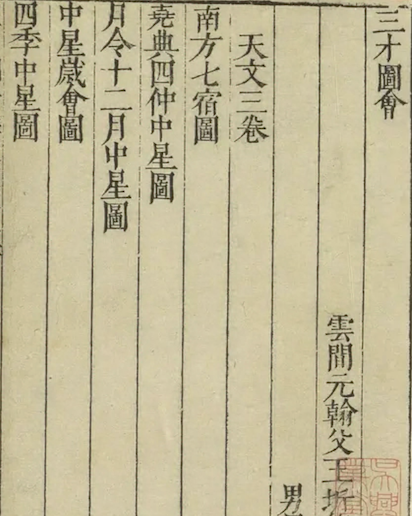 三才圖會
雲間元翰父王圻
男
天文三卷
南方七宿圖
堯典四仲中星圖
月令十二月中星圖
中星歲會圖
四季中星圖